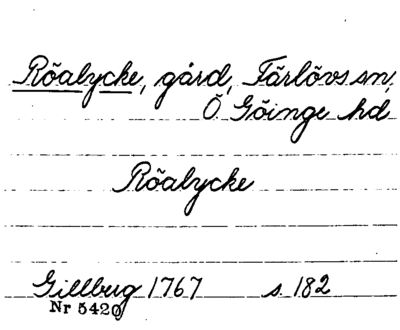 Röalycke, gård, Färlövs sn,
Ö Göinge hd
Röalycke
Gillberg 1767 s. 182
Nr 5420